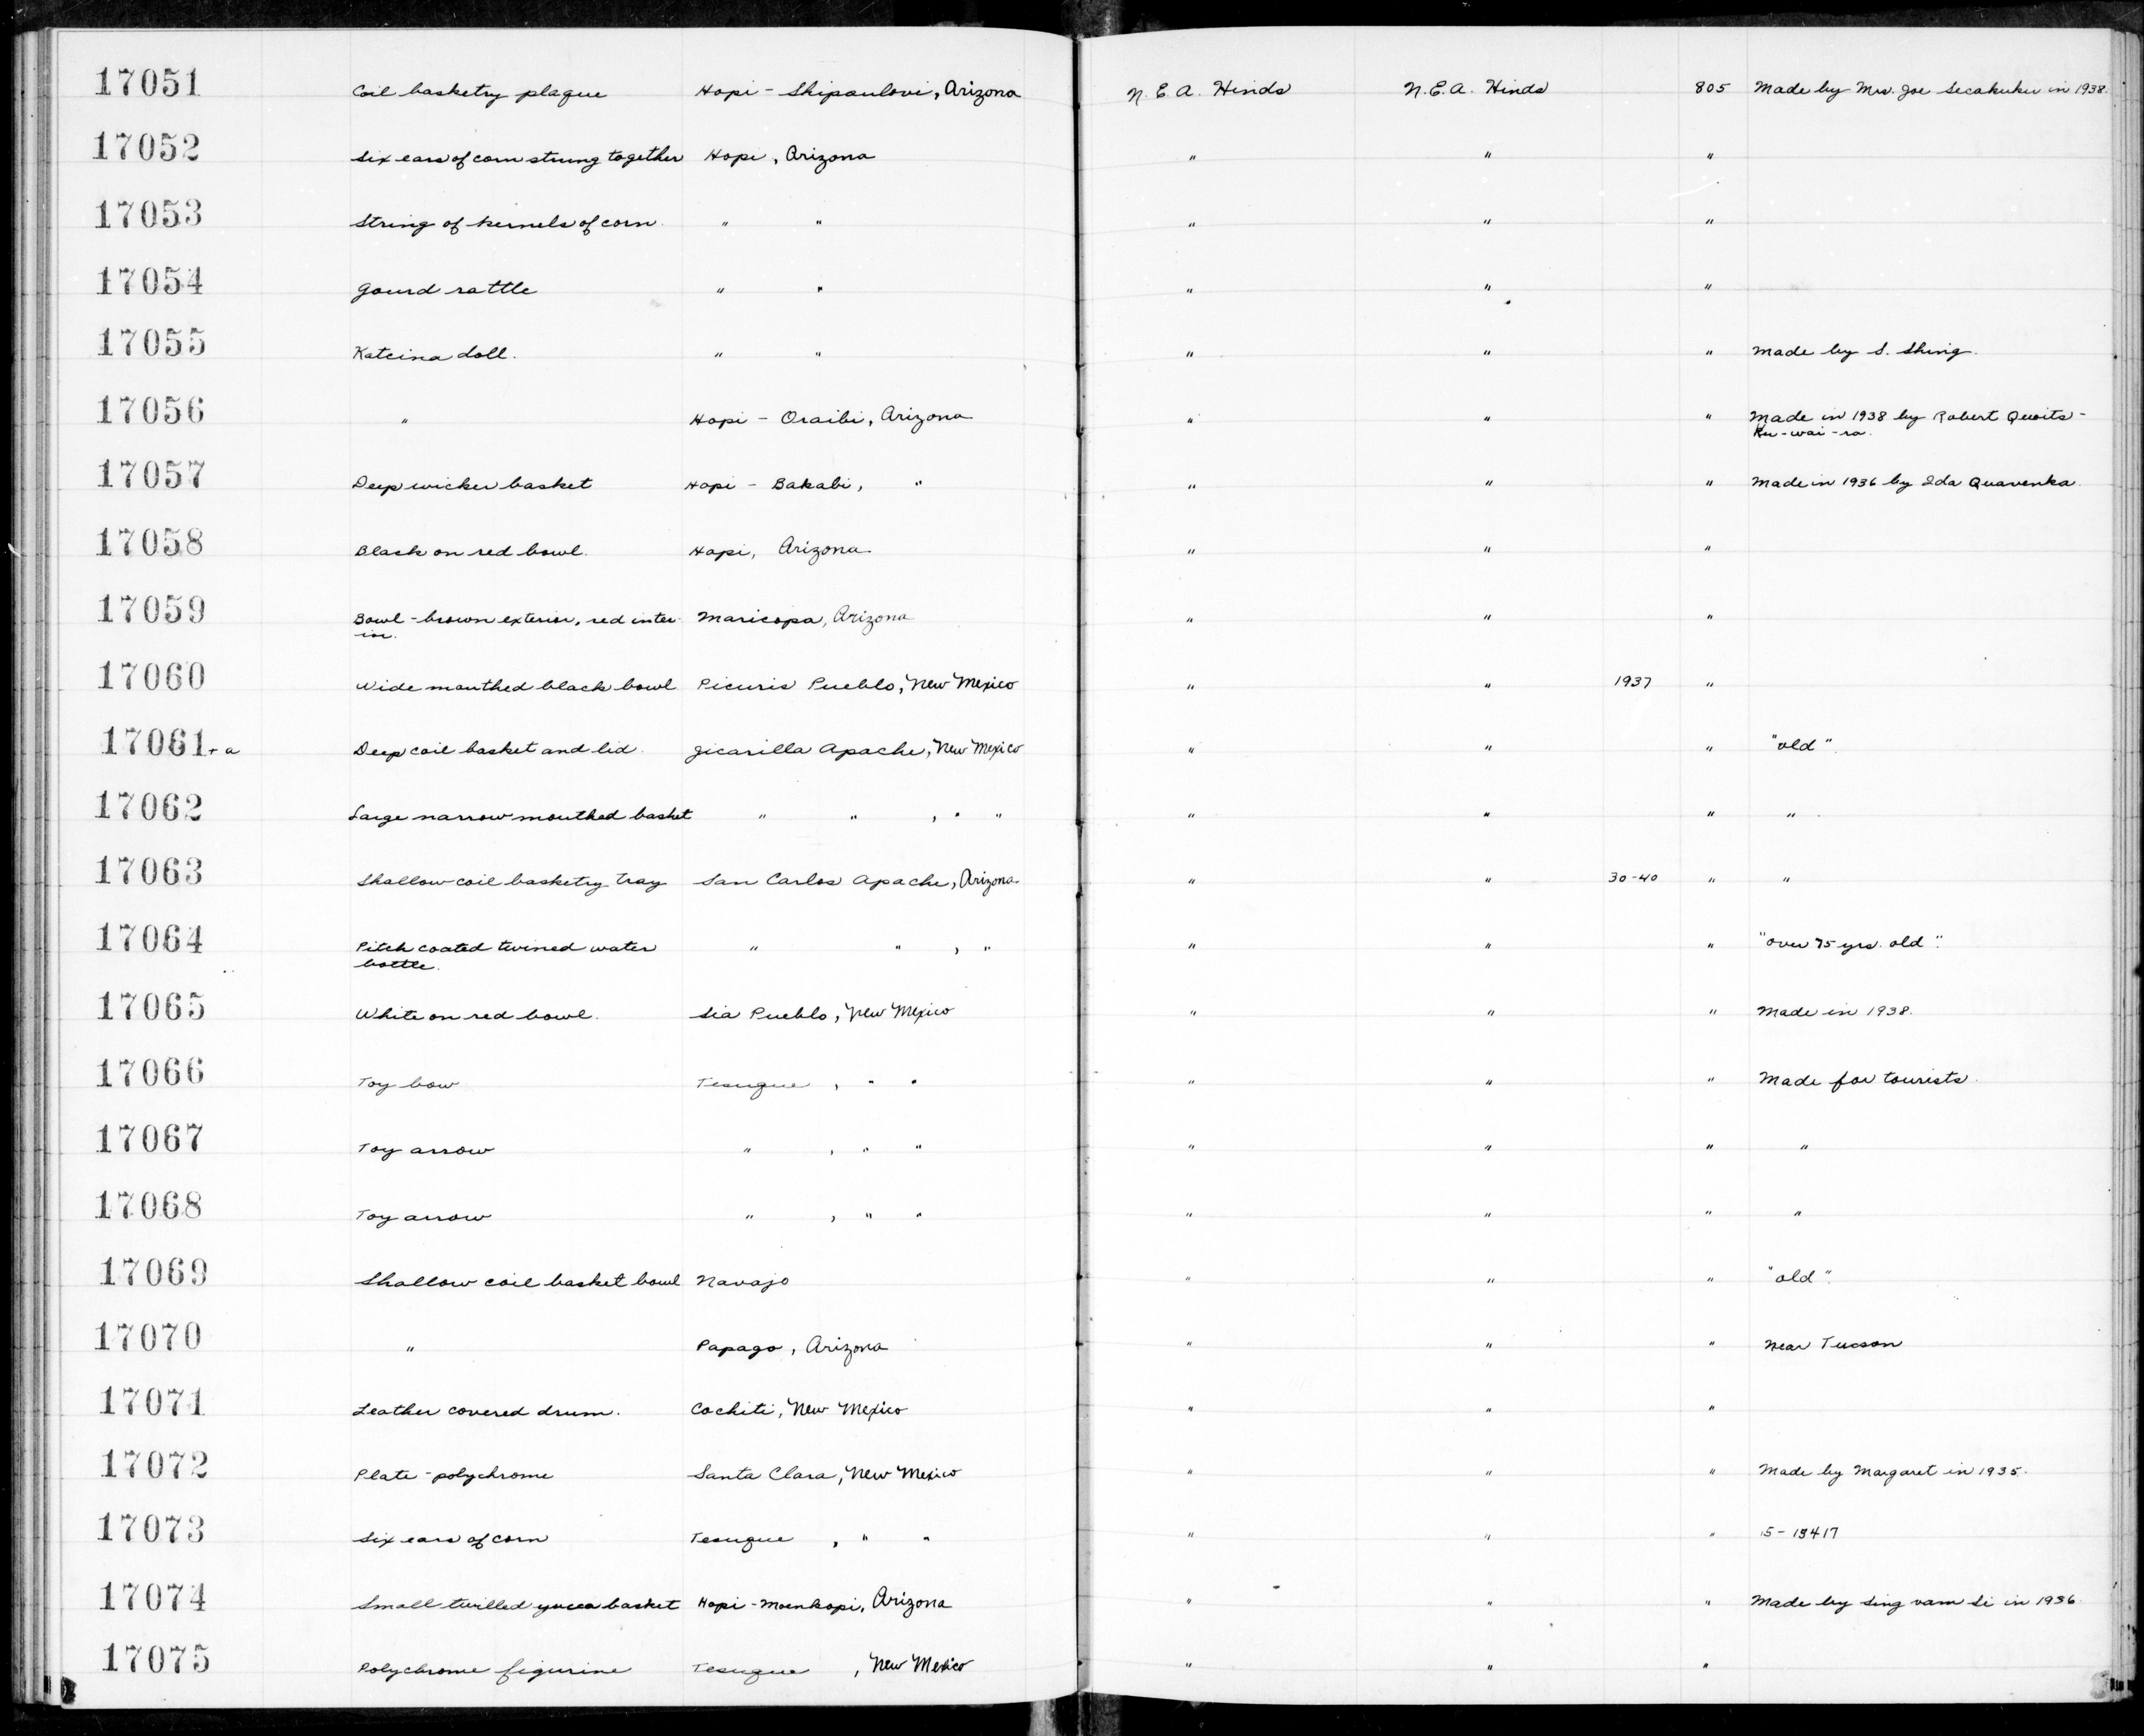 17051 Coil basketry plaque Hopi - Shipaulovi, Arizona N.E.A. Hinds N.E.A. Hinds 805 Made by Mrs. Joe Secakuku in 1938.
17052 Six ears of corn strung together Hopi, Arizona " " "
17053 String of kernels of corn " " " " "
17054 Gourd rattle " " " " "
17055 Katcina doll. " " " " " Made by S. Shing.
17056 " Hopi - Oraibi, Arizona " " " Made in 1938 by Robert Quoits-
Ku-wai-ra.
17057 Deep wicker basket Hopi - Bakabi, " " " " Made in 1936 by Ida Quavenka.
17058 Black on red bowl. Hopi, Arizona " " "
17059 Bowl - brown exterior, red inter- Maricopa, Arizona " " "
ior.
17060 Wide mouthed black bowl Picuris Pueblo, New Mexico " " 1937 "
17061 + a Deep coil basket and lid. Jicarilla Apache, New Mexico " " " "old".
17062 Large narrow mouthed basket " " , " " " " " "
17063 Shallow coil basketry tray San Carlos Apache, Arizona " " 30-40 " "
17064 Pitch coated twined water " " , " " " " "over 75 yrs. old".
bottle.
17065 White on red bowl. Sia Pueblo, New Mexico " " " Made in 1938.
17066 Toy bow Tesuque , " " " " " Made for tourists.
17067 Toy arrow " , " " " " " "
17068 Toy arrow " , " " " " " "
17069 Shallow coil basket bowl Navajo " " " "old".
17070 " Papago, Arizona " " " Near Tucson
17071 Leather covered drum. Cochiti, New Mexico " " "
17072 Plate - polychrome Santa Clara, New Mexico " " " Made by Margaret in 1935.
17073 Six ears of corn Tesuque , " " " " " 5-13417
17074 Small twilled yucca basket Hopi - Moenkopi, Arizona " " " Made by Sing vam Si in 1936
17075 Polychrome figurine Tesuque , New Mexico " " "